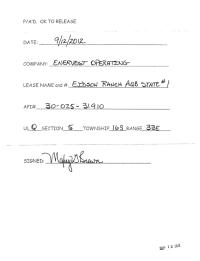 P/A'D. OK TO RELEASE
DATE: 9/12/2012
COMPANY: ENERVEST OPERATING
LEASE NAME and #: EIDSON RANCH AQB STATE #1
API# 30-025-31910
UL Q SECTION 5 TOWNSHIP 16S RANGE 33E
SIGNED:
SEP 13 2012